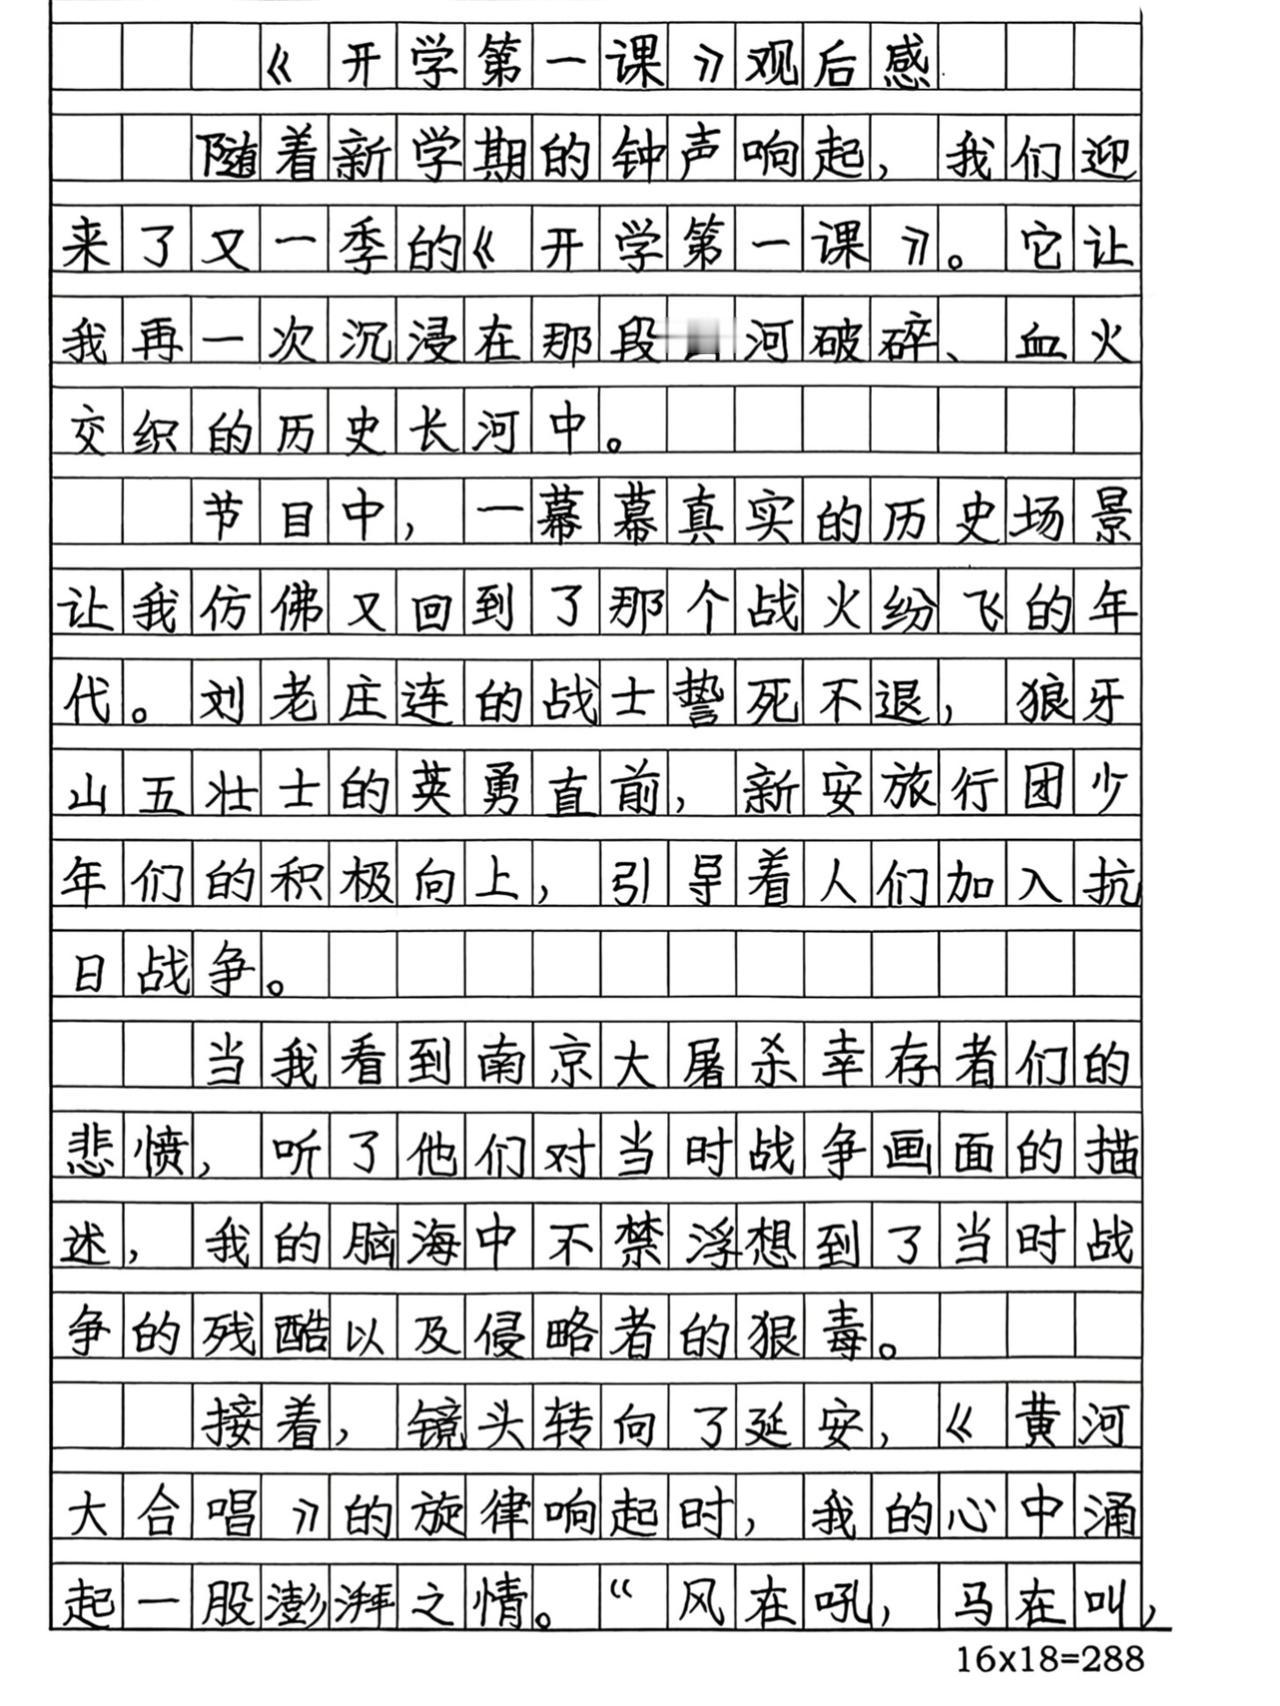 《开学第一课》观后感
随着新学期的钟声响起，我们迎
来了又一季的《开学第一课》。它让
我再一次沉浸在那段河破碎、血火
交织的历史长河中。
节目中，一幕幕真实的历史场景
让我仿佛又回到了那个战火纷飞的年
代。刘老庄连的战士誓死不退，狼牙
山五壮士的英勇直前，新安旅行团少
年们的积极向上，引导着人们加入抗
日战争。
当我看到南京大屠杀幸存者们的
悲愤，听了他们对当时战争画面的描
述，我的脑海中不禁浮想到了当时战
争的残酷以及侵略者的狠毒。
接着，镜头转向了延安，《黄河
大合唱》的旋律响起时，我的心中涌
起一股澎湃之情。“风在吼，马在叫，
16x18=288